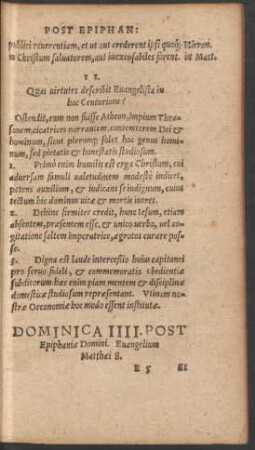 POST EPIPHAN:
publici reuerentiam, et ut aut crederent ipsi quoq; Hieron.
in Christum saluatorem, aut inexcusabiles forent. in Matt.
II.
Quas uirtutes describit Euangelista in
hoc Centurione?
Ostendit, eum non fuisse Atheon, impium Thra-
sonem, cicatrices narrantem, contemtorem Dei &
hominum, sicut plerunq; solet hoc genus homi-
num, sed pietatis & honestatis studiosum.
1. Primò enim humilis est erga Christum, cui
aduersam famuli ualetudinem modestè indicat,
petens auxilium, & iudicans se indignum, cuius
tectum hic dominus uitæ & mortis intret.
2. Debinc firmiter credit, hunc Iesum, etiam
absentem, præsentem esse, & unico uerbo, uel co-
gitatione saltem imperatrice, ægrotos curare pos-
se.
3. Digna est laude intercessio huius capitanei
pro seruo fideli, & commemoratio obedientiæ
subditorum: hæc enim piam mentem & disciplinæ
domesticæ studiosum repræsentant. Vtinam no-
stræ Oeconomiæ hoc modo essent institutæ.
DOMINICA IIII. POST
Epiphaniæ Domini. Euangelium
Matthæi 8.
E 5 Et